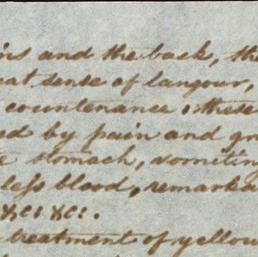 ins and the back, the
eat sense of langour,
countenance, these
ed by pain and gr
stomach, vomiting
less blood, remarka
&c: &c:.
treatment of yellow